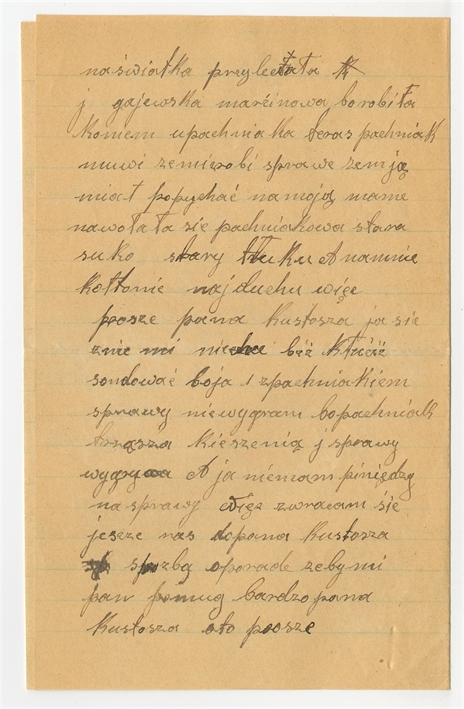 naświatka przyleciała
j gajewska marcinowa borobiła
koniem upachniaka teras pachniak
muwi zemizrobi sprawe zemją
miał popychać namoją mame
nawołała sie pachniakowa stara
suko stary tłuku A namnie
kołtonie najduchu więc
prosze pana Kustosza ja sie
znie mi niechce być
sondować boja i zpachniakiem
sprawy niewygram bopachniak
trząsza kieszenią j sprawy
wygrywa A ja niemam piniędzy
na sprawy więc zwracam śie
jescze nas dopana kustosza
sprozbą oporade zebymi
pan pomug bardzo pana
Kustosza oto prosze